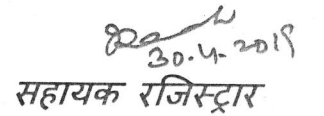 30.4.2019
सहायक रजिस्ट्रार